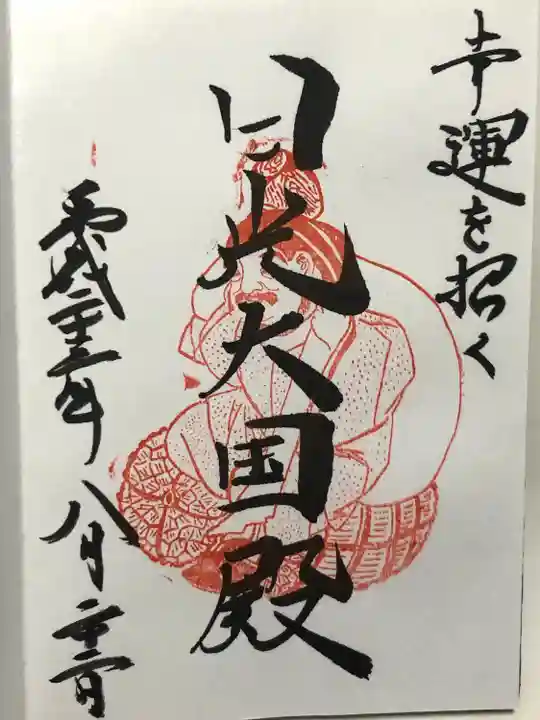 幸運を招く
日光大国殿
平成二十三年八月二十二日